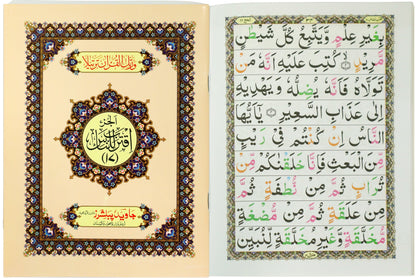 ورتل القرآن ترتیلا
الجزء
اقترب للناس
(۱۷)
جاوید پبلشرز
بِغَيْرِ عِلْمٍ وَّيَتَّبِعُ كُلَّ شَيْطٰنٍ
مَّرِيْدٍ ۙ كُتِبَ عَلَيْهِ اَنَّهٗ مَنْ
تَوَلَّاهُ فَاَنَّهٗ يُضِلُّهٗ وَيَهْدِيْهِ
اِلٰى عَذَابِ السَّعِيْرِ يٰۤاَيُّهَا
النَّاسُ اِنْ كُنْتُمْ فِيْ رَيْبٍ
مِّنَ الْبَعْثِ فَاِنَّا خَلَقْنٰكُمْ مِّنْ
تُرَابٍ ثُمَّ مِنْ نُّطْفَةٍ ثُمَّ
مِنْ عَلَقَةٍ ثُمَّ مِنْ مُّضْغَةٍ
مُّخَلَّقَةٍ وَّغَيْرِ مُخَلَّقَةٍ لِّنُبَيِّنَ